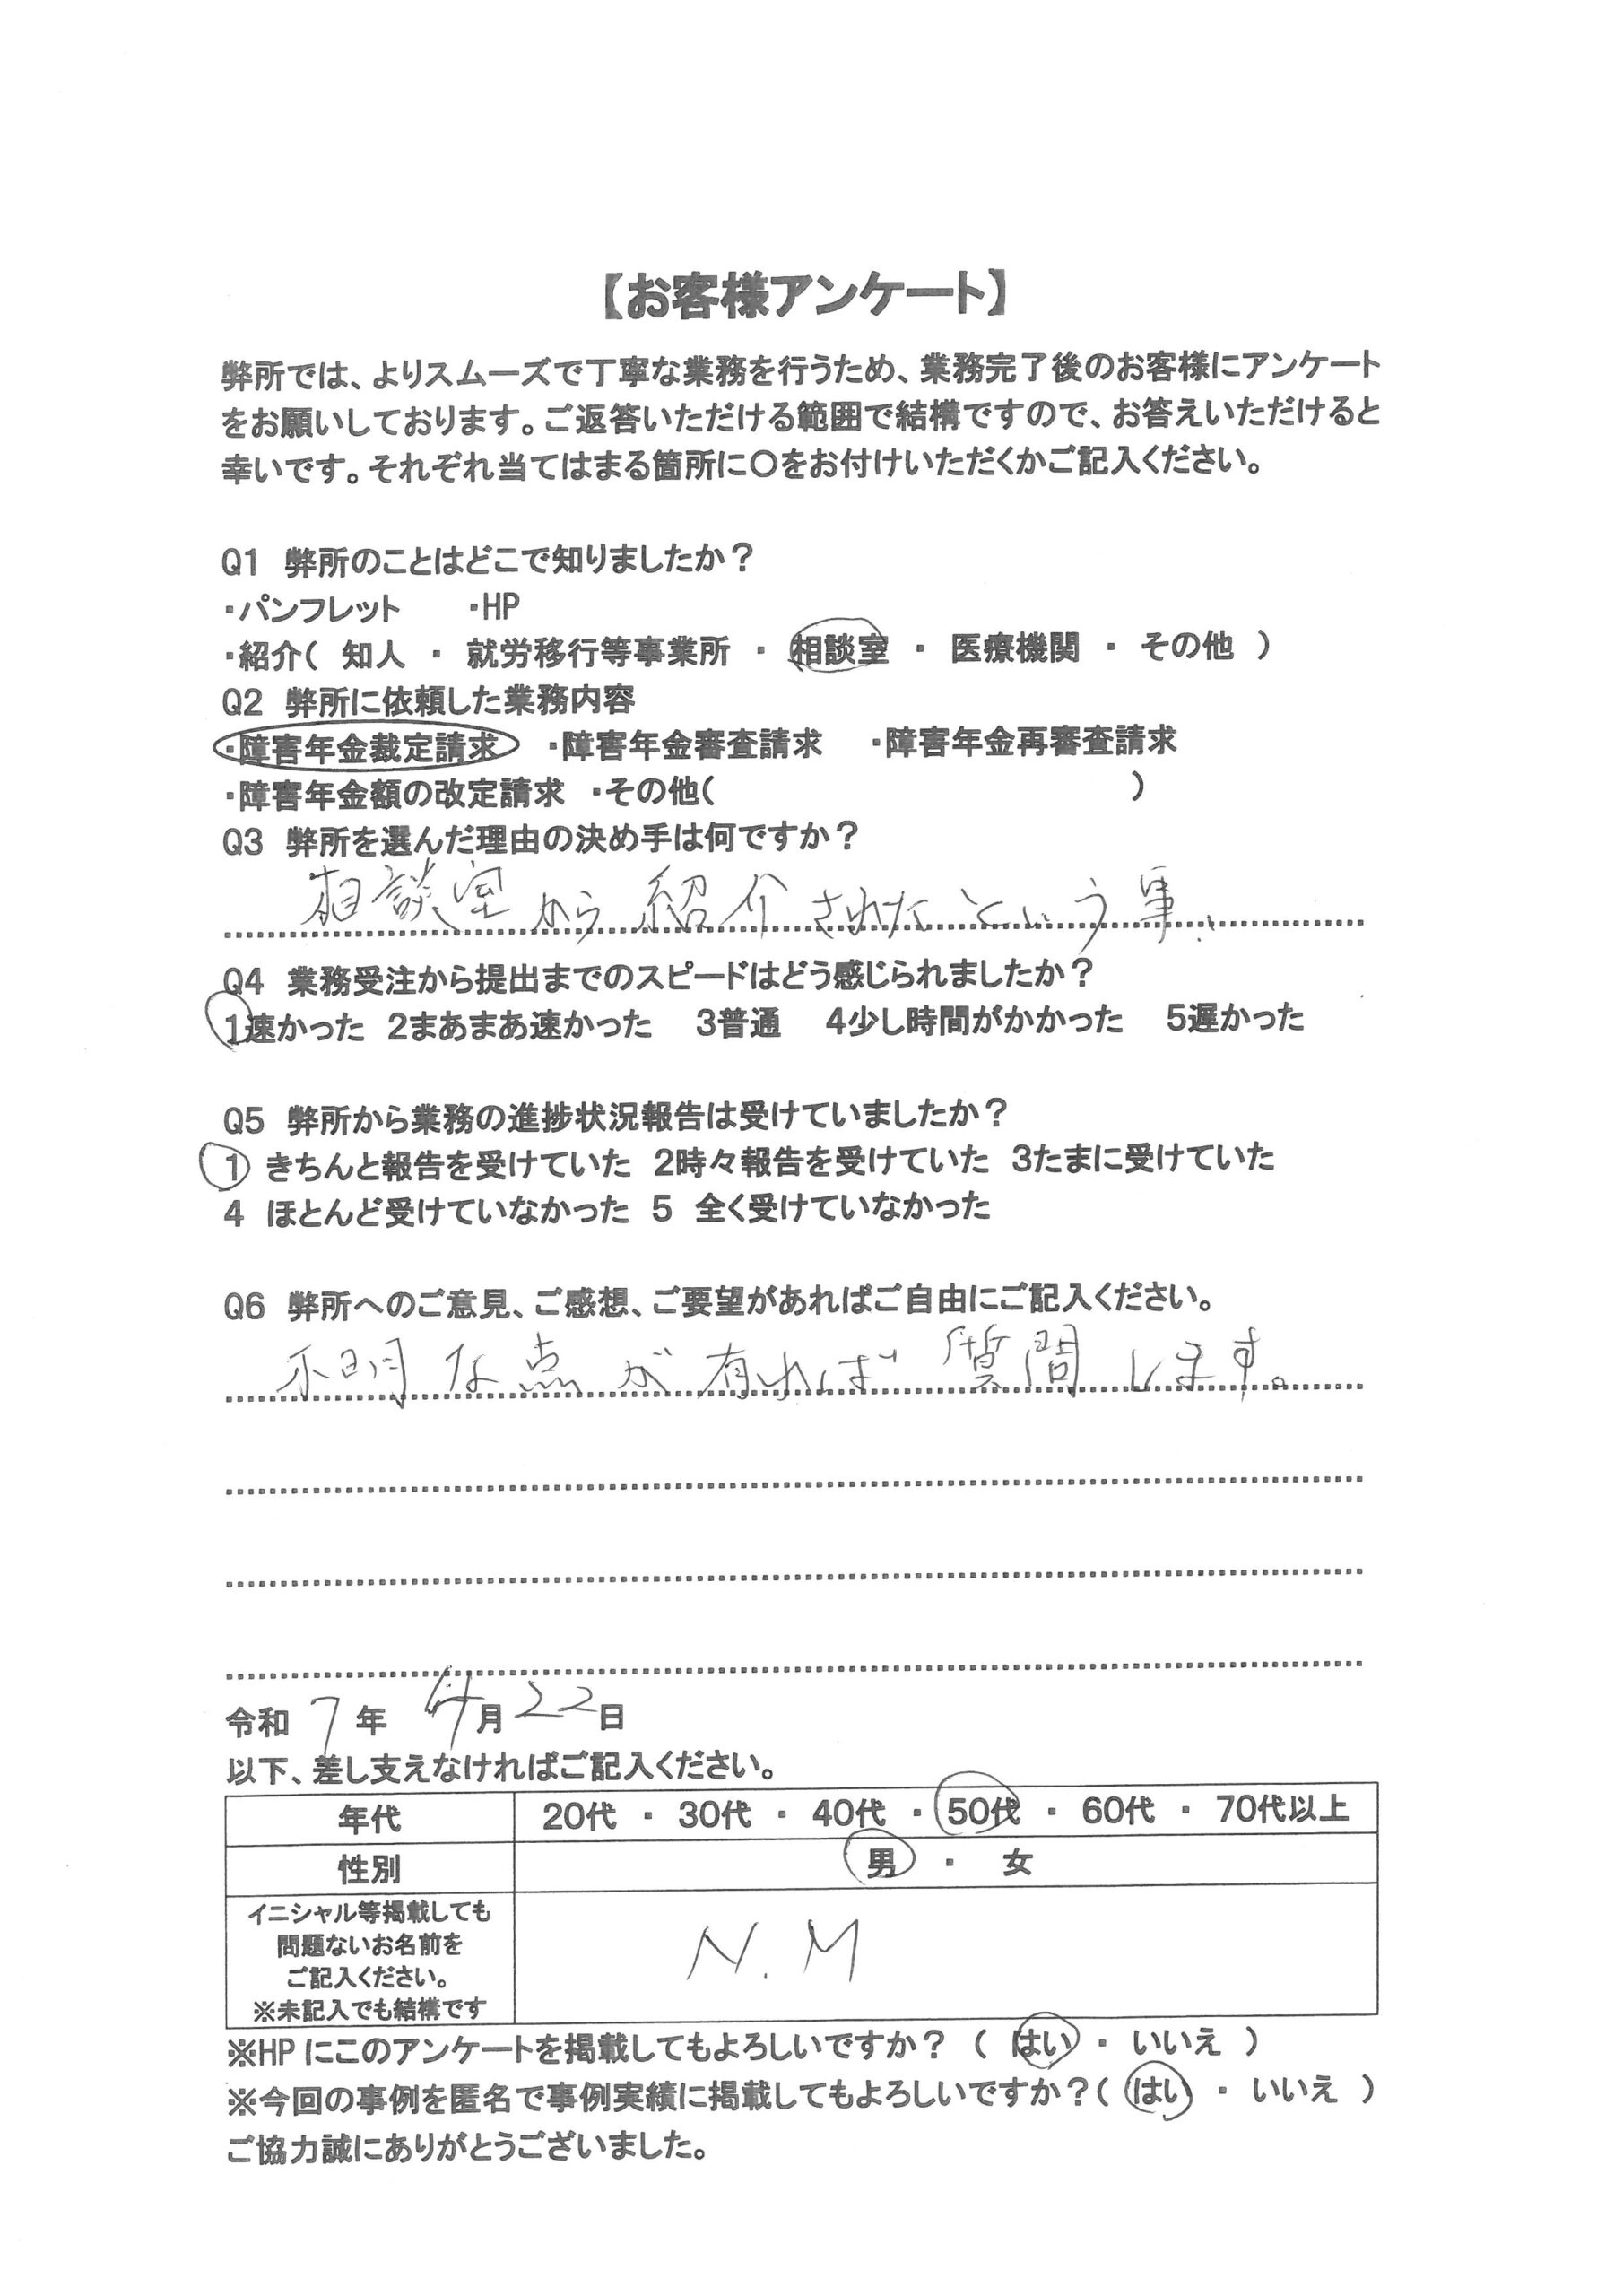 【お客様アンケート】
弊所では、よりスムーズで丁寧な業務を行うため、業務完了後のお客様にアンケート
をお願いしております。ご返答いただける範囲で結構ですので、お答えいただけると
幸いです。それぞれ当てはまる箇所に〇をお付けいただくかご記入ください。
Q1 弊所のことはどこで知りましたか？
・パンフレット ・HP
・紹介( 知人 ・ 就労移行等事業所 ・ 相談室 ・ 医療機関 ・ その他 )
Q2 弊所に依頼した業務内容
・障害年金裁定請求 ・障害年金審査請求 ・障害年金再審査請求
・障害年金額の改定請求 ・その他( )
Q3 弊所を選んだ理由の決め手は何ですか？
相談室から紹介されたという事、
Q4 業務受注から提出までのスピードはどう感じられましたか？
1速かった 2まあまあ速かった 3普通 4少し時間がかかった 5遅かった
Q5 弊所から業務の進捗状況報告は受けていましたか？
1 きちんと報告を受けていた 2時々報告を受けていた 3たまに受けていた
4 ほとんど受けていなかった 5 全く受けていなかった
Q6 弊所へのご意見、ご感想、ご要望があればご自由にご記入ください。
不明な点が有れば質問します。
令和 7 年 4 月 22 日
以下、差し支えなければご記入ください。
年代 20代 ・ 30代 ・ 40代 ・ 50代 ・ 60代 ・ 70代以上
性別 男 ・ 女
イニシャル等掲載しても
問題ないお名前を
ご記入ください。
※未記入でも結構です
N.M
※HPにこのアンケートを掲載してもよろしいですか？ ( はい ・ いいえ )
※今回の事例を匿名で事例実績に掲載してもよろしいですか？( はい ・ いいえ )
ご協力誠にありがとうございました。